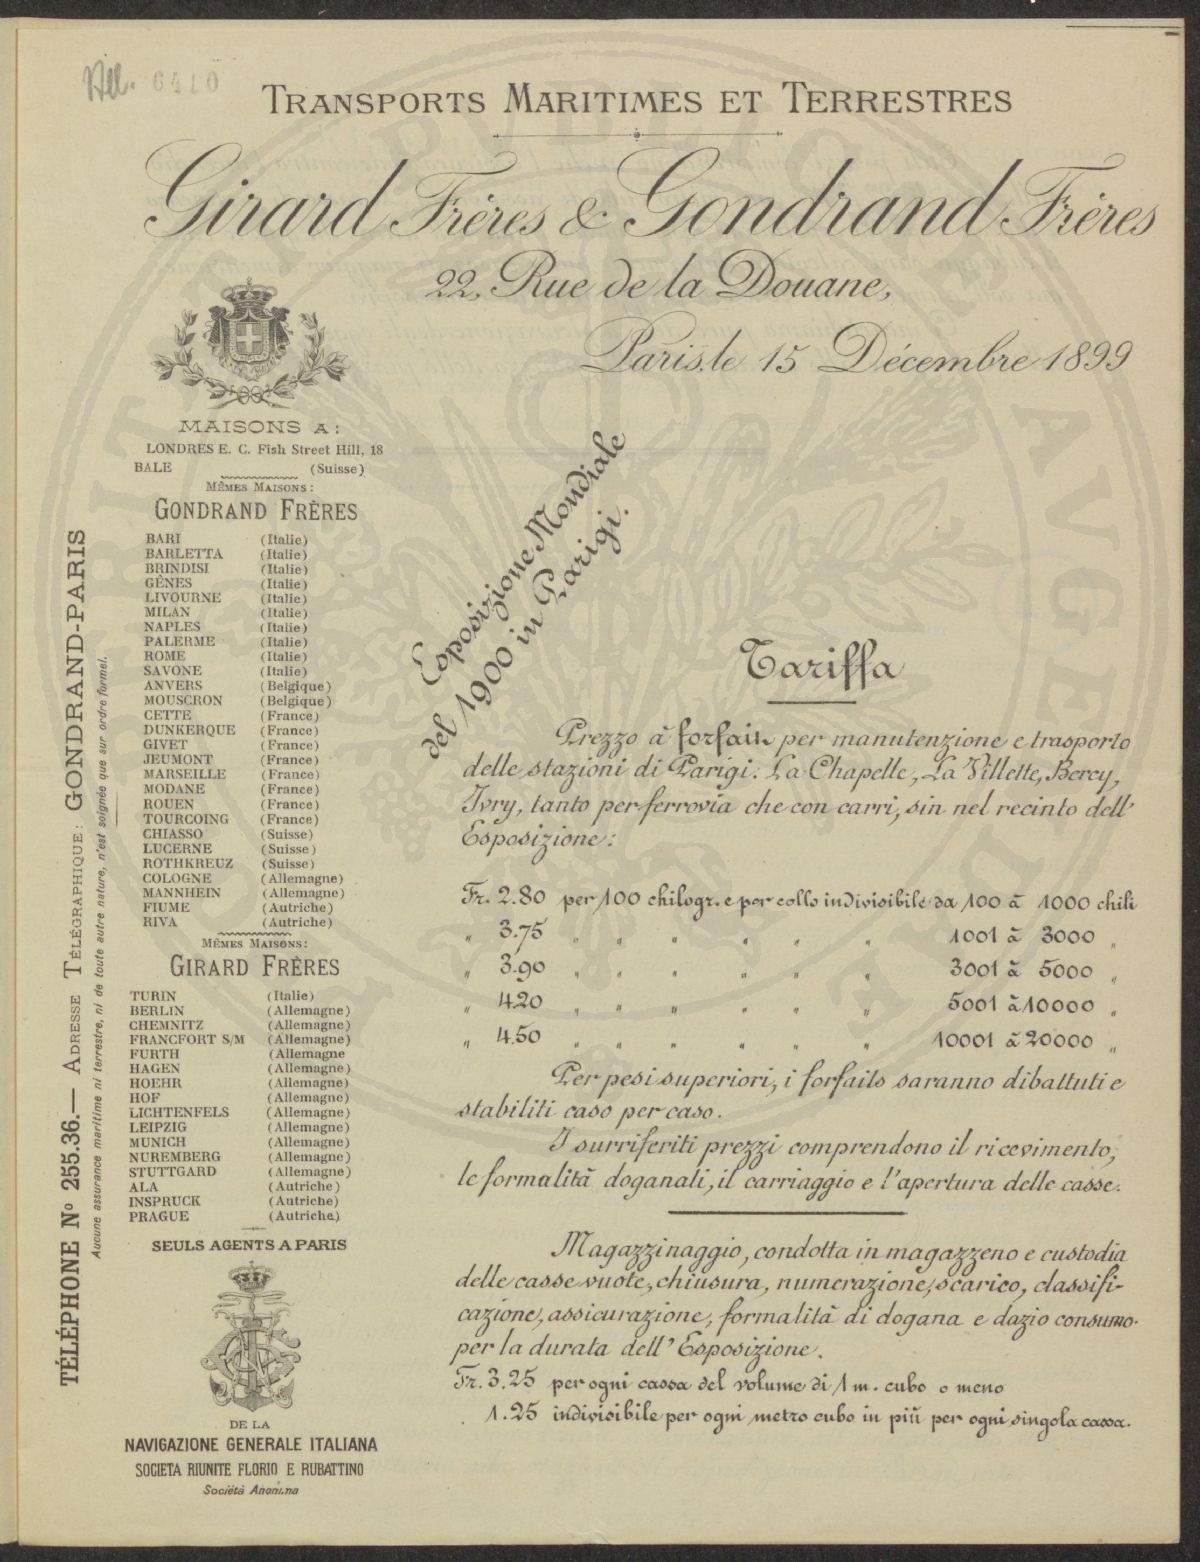 All. 6410
TRANSPORTS MARITIMES ET TERRESTRES
Girard Frères & Gondrand Frères
22, Rue de la Douane,
Paris, le 15 Décembre 1899
MAISONS A:
LONDRES E. C. Fish Street Hill, 18
BALE (Suisse)
MÊMES MAISONS:
GONDRAND FRÈRES
BARI (Italie)
BARLETTA (Italie)
BRINDISI (Italie)
GÊNES (Italie)
LIVOURNE (Italie)
MILAN (Italie)
NAPLES (Italie)
PALERME (Italie)
ROME (Italie)
SAVONE (Italie)
ANVERS (Belgique)
MOUSCRON (Belgique)
CETTE (France)
DUNKERQUE (France)
GIVET (France)
JEUMONT (France)
MARSEILLE (France)
MODANE (France)
ROUEN (France)
TOURCOING (France)
CHIASSO (Suisse)
LUCERNE (Suisse)
ROTHKREUZ (Suisse)
COLOGNE (Allemagne)
MANNHEIN (Allemagne)
FIUME (Autriche)
RIVA (Autriche)
MÊMES MAISONS:
GIRARD FRÈRES
TURIN (Italie)
BERLIN (Allemagne)
CHEMNITZ (Allemagne)
FRANCFORT S/M (Allemagne)
FURTH (Allemagne
HAGEN (Allemagne)
HOEHR (Allemagne)
HOF (Allemagne)
LICHTENFELS (Allemagne)
LEIPZIG (Allemagne)
MUNICH (Allemagne)
NUREMBERG (Allemagne)
STUTTGARD (Allemagne)
ALA (Autriche)
INSPRUCK (Autriche)
PRAGUE (Autriche)
SEULS AGENTS A PARIS
DE LA
NAVIGAZIONE GENERALE ITALIANA
SOCIETA RIUNITE FLORIO E RUBATTINO
Société Anonima
TÉLÉPHONE No 255.36.— ADRESSE TÉLÉGRAPHIQUE: GONDRAND-PARIS
Aucune assurance maritime ni terrestre, ni de toute autre nature, n'est soignée que sur ordre formel.
Esposizione Mondiale
del 1900 in Parigi.
Tariffa
Prezzo à forfait per manutenzione e trasporto
delle stazioni di Parigi: La Chapelle, La Villette, Bercy,
Ivry, tanto per ferrovia che con carri, sin nel recinto dell'
Esposizione:
Fr. 2.80 per 100 chilogr. e per collo indivisibile da 100 à 1000 chili
" 3.75 " " " " " " 1001 à 3000 "
" 3.90 " " " " " " 3001 à 5000 "
" 4.20 " " " " " " 5001 à 10000 "
" 4.50 " " " " " " 10001 à 20000 "
Per pesi superiori, i forfaits saranno dibattuti e
stabiliti caso per caso.
I surriferiti prezzi comprendono il ricevimento,
le formalità doganali, il carriaggio e l'apertura delle casse.
Magazzinaggio, condotta in magazzeno e custodia
delle casse vuote, chiusura, numerazione, scarico, classifi-
cazione, assicurazione, formalità di dogana e dazio consumo
per la durata dell'Esposizione.
Fr. 3.25 per ogni cassa del volume di 1 m. cubo o meno
" 1.25 indivisibile per ogni metro cubo in più per ogni singola cassa.